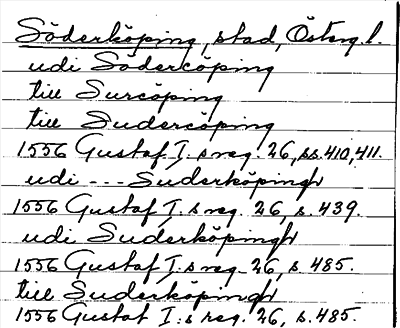 Söderköping, stad, Österg. l.
udi Södercöping
till Surcöping
till Sudercöping
1556 Gustaf I. s reg. 26, ss. 410, 411.
udi --- Suderköpingh
1556 Gustaf I. s reg. 26, s. 439.
udi Suderköpingh
1556 Gustaf I. s reg. 26, s. 485.
till Suderköpingh
1556 Gustaf I: s reg. 26, s. 485.